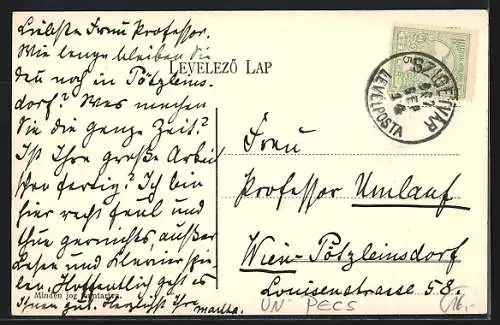 Liebste Frau Professor.
Wie lange bleiben Sie
denn noch in Pötzleins-
dorf? Was machen
Sie die ganze Zeit?
Ist Ihre große Arbeit
schon fertig? Ich bin
hier recht faul und
thue gar nichts, außer
Lesen und Klavierspie-
len. Hoffentlich geht es
Ihnen gut. Herzlichst Ihre
Martha.
LEVELEZŐ LAP
SZIGETVÁR
907
SEP
LEVÉLPOSTA
Frau
Professor Umlauf
Wien-Pötzleinsdorf
Louisenstrasse 58.
Minden jog fenntartva.
UN PECS